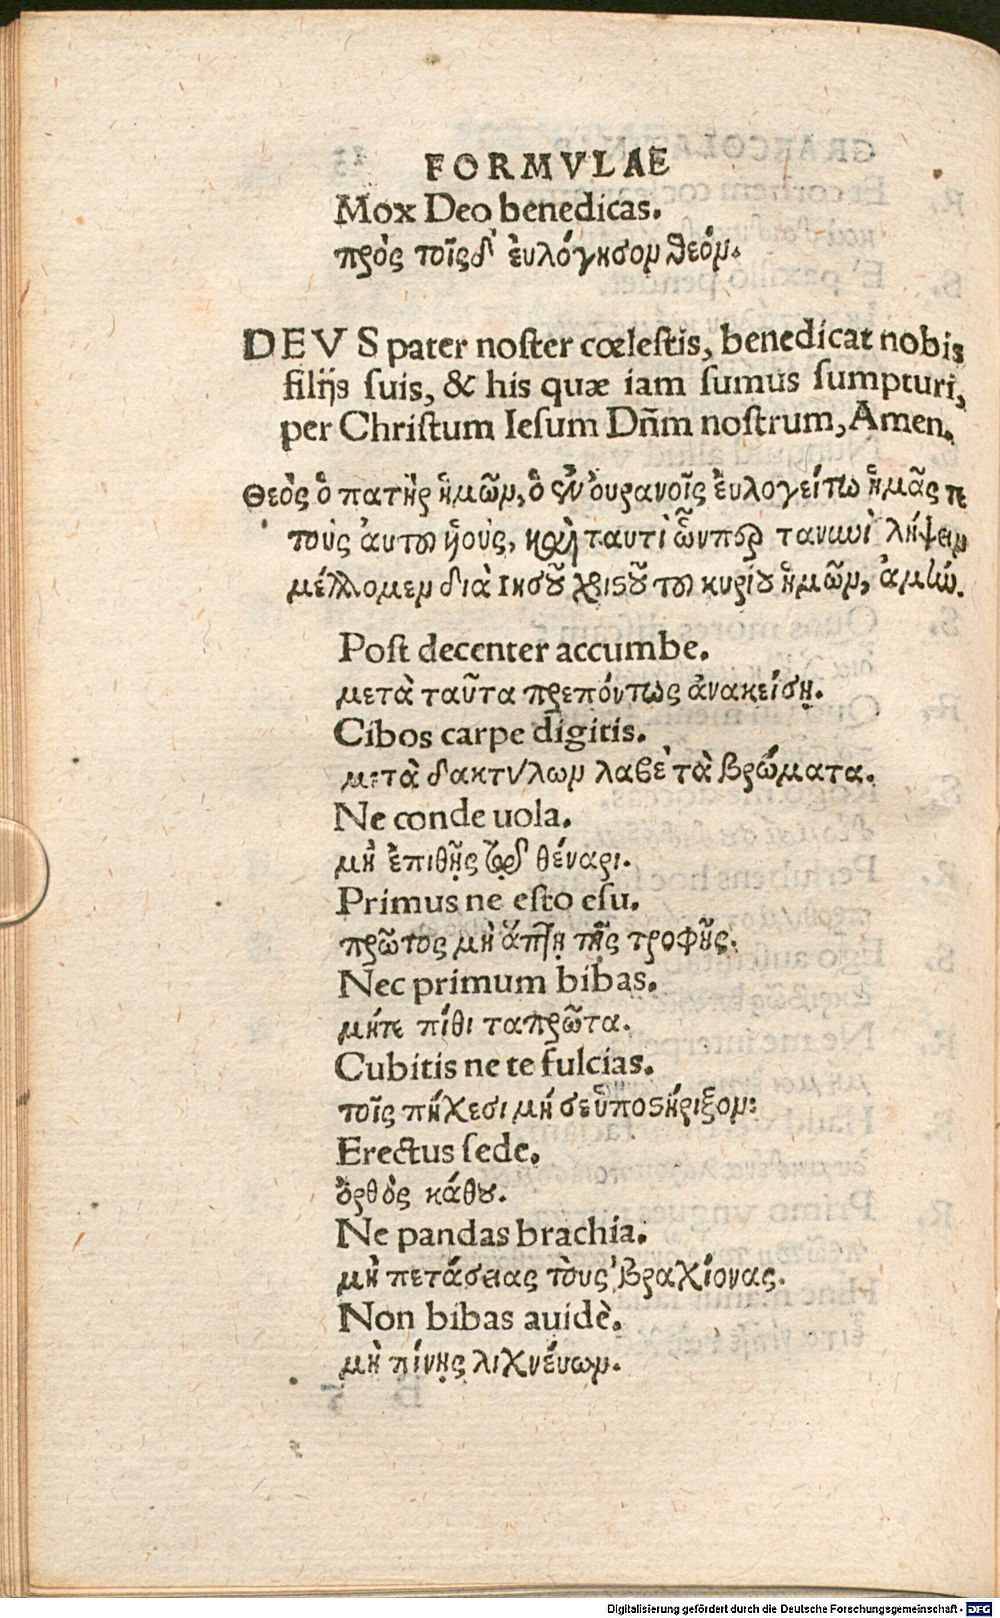 FORMVLAE
Mox Deo benedicas.
πρὸς τοῖς δ' ἐυλόγησον θεόν.
DEVS pater noster cœlestis, benedicat nobis
filijs suis, & his quæ iam sumus sumpturi,
per Christum Iesum Dñm nostrum, Amen.
Θεὸς ὁ πατὴρ ἡμῶν, ὁ ἐν ὀυρανοῖς ἐυλογείτω ἡμᾶς τε
τοὺς ἀυτοῦ ὑοὺς, καὶ ταυτὶ ὧνπερ τανυνὶ λήψειν
μέλλομεν διὰ Ιησοῦ χριστοῦ τοῦ κυρίου ἡμῶν, ἀμήν.
Post decenter accumbe.
μετὰ ταῦτα πρεπόντως ἀνακείσῃ.
Cibos carpe digitis.
μετὰ δακτύλων λαβὲ τὰ βρώματα.
Ne conde uola.
μὴ ἐπιθῇς θέναρι.
Primus ne esto esu.
πρῶτος μὴ ἅπτῃ τῆς τροφῆς.
Nec primum bibas.
μήτε πίθι ταπρῶτα.
Cubitis ne te fulcias.
τοῖς πήχεσι μή σε ὑποστήριξον:
Erectus sede.
ὄρθὸς κάθου.
Ne pandas brachia.
μὴ πετάσειας τοὺς βραχίονας.
Non bibas auidè.
μὴ πίνῃς λιχνέυων.
Digitalisierung gefördert durch die Deutsche Forschungsgemeinschaft - DFG